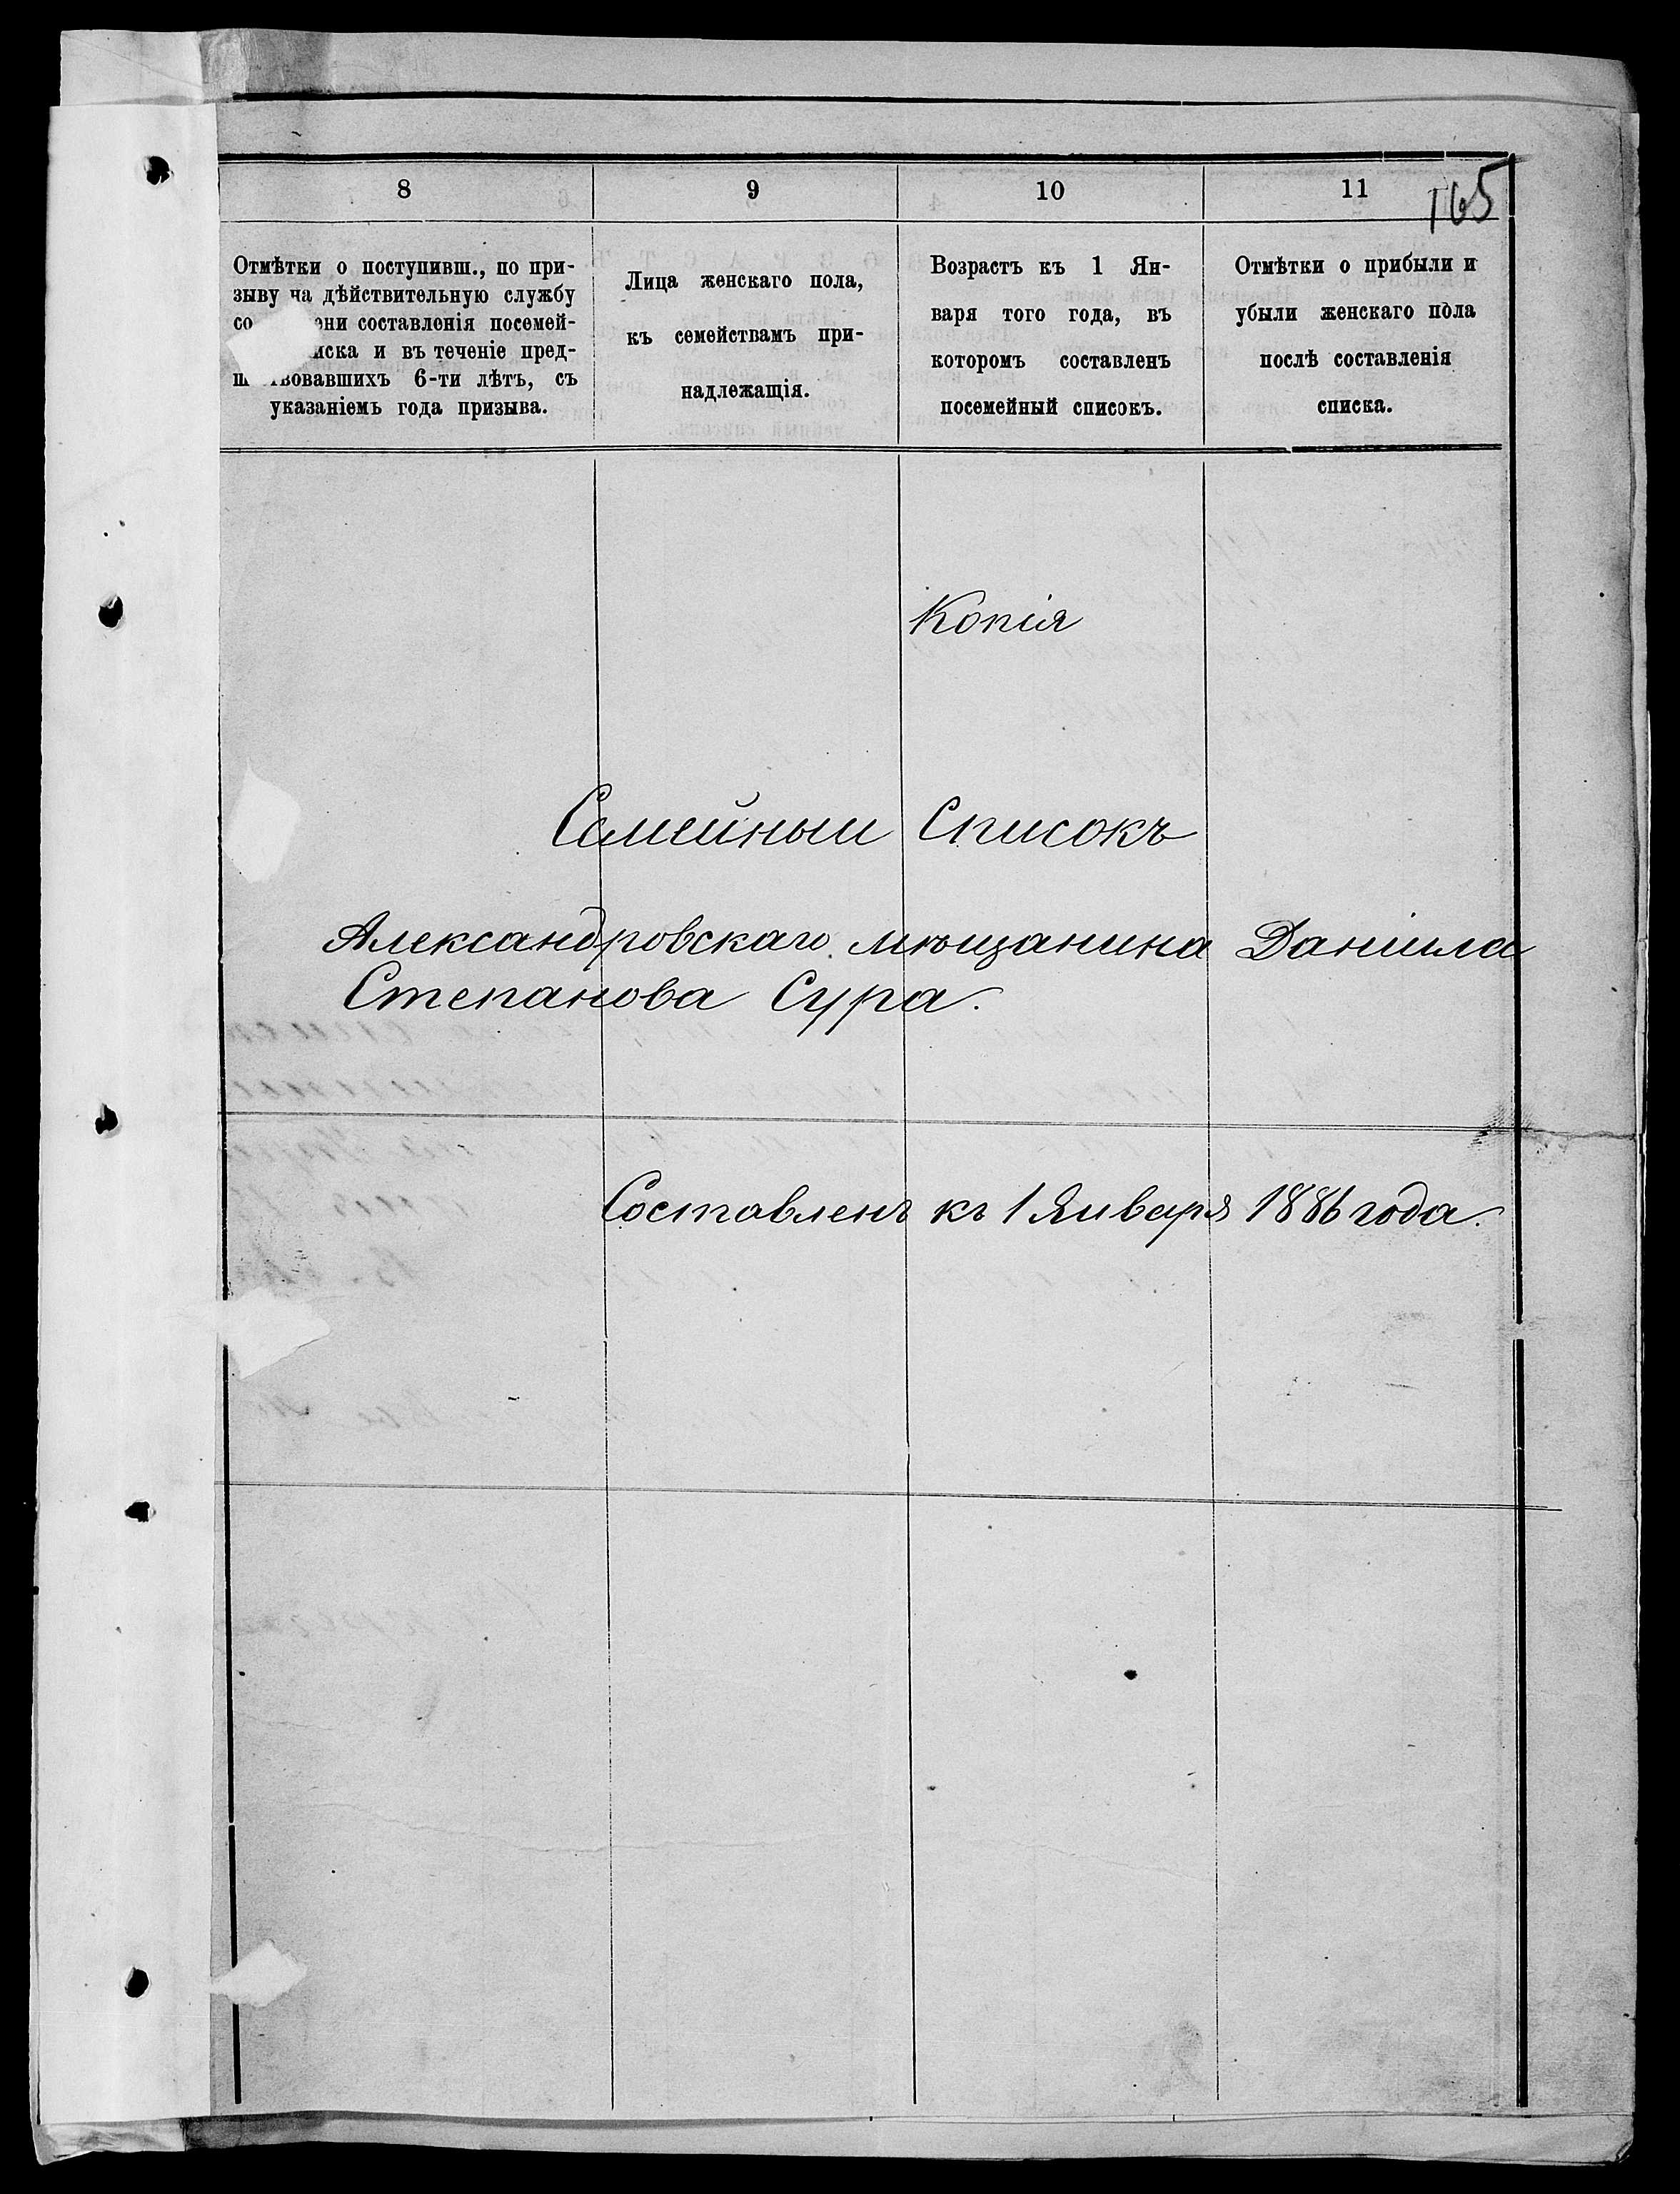 8 9 10 11
165
Отмѣтки о поступивш., по при-
зыву на дѣйствительную службу
со ени составленія посемей-
иска и въ теченіе пред-
ш вовавшихъ 6-ти лѣтъ, съ
указаніемъ года призыва.
Лица женскаго пола,
къ семействамъ при-
надлежащія.
Возрастъ къ 1 Ян-
варя того года, въ
которомъ составленъ
посемейный списокъ.
Отмѣтки о прибыли и
убыли женскаго пола
послѣ составленія
списка.
Копія
Семейный Списокъ
Александровскаго мѣщанина Даніила
Степанова Сура.
Составленъ къ 1 Января 1886 года.